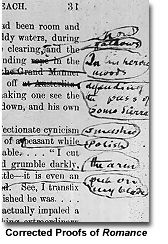 BACH. 31
ad been room and
ddy waters, during
e clearing, and the
nding rope in the
the Grand Manner
off at Austerlitz
aking one see the
down, and his own
ectionate cynicism
of a peasant while
able. . . . "I cut
d grumble darkly,
ttle—it is even an
d. See, I transfix
ished he was. . . .
actually impaled a
In heroic
moods
defending
the pass of
somosierra
smoked
polish
the arm
put on
my blade
Corrected Proofs of Romance